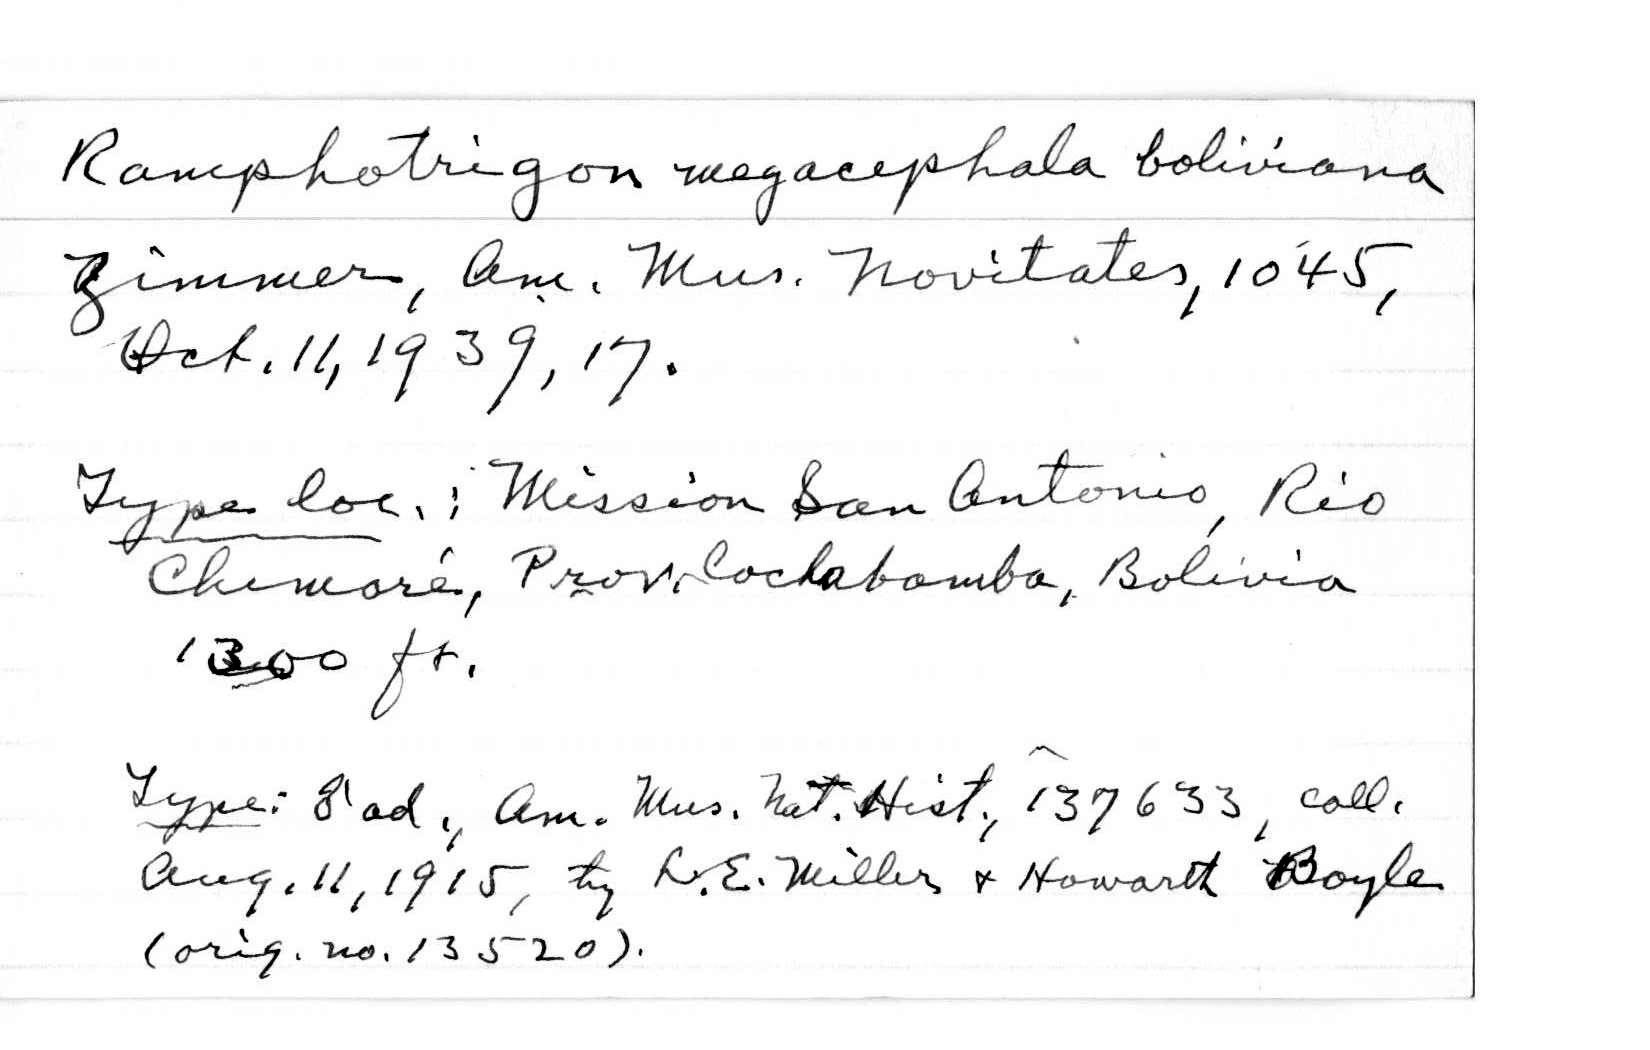 Ramphotrigon megacephala boliviana
Zimmer, Am. Mus. Novitates, 1045,
Oct. 11, 1939, 17.
Type loc.: Mission San Antonio, Rio
Chimoré, Prov. Cochabamba, Bolivia
1300 ft.
Type: ♂ ad., Am. Mus. Nat. Hist., 137633, coll.
Aug. 11, 1915, by L.E. Miller & Howarth Boyle
(orig. no. 13520).